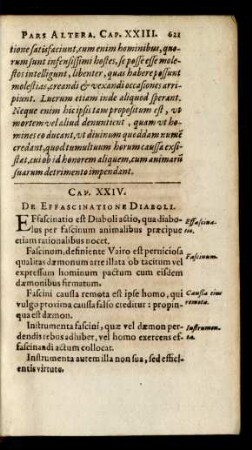 PARS ALTERA. CAP. XXIII. 621
tione satisfaciunt, cum enim hominibus, quo-
rum sunt infensissimi hostes, se posse esse mole-
stos intelligunt, libenter, quas habere possunt
molestias, creandi & vexandi occasiones arri-
piunt. Lucrum etiam inde aliquod sperant.
Neque enim hic ipsis tam propositum est, vt
mortem vel aliud denuntient, quàm vt ho-
mines eo ducant, vt diuinum quoddam numẽ
credant, quod tumultuum horum caussa exsi-
stat, cui ob id honorem aliquem, cum animarũ
suarum detrimento impendant.
CAP. XXIV.
DE EFFASCINATIONE DIABOLI.
EFfascinatio est Diaboli actio, qua diabo-
lus per fascinum animalibus præcipue
etiam rationalibus nocet.
Effascina-
tio.
Fascinum, definiente Vairo est perniciosa
qualitas dæmonum arte illata ob tacitum vel
expressum hominum pactum cum eisdem
dæmonibus firmatum.
Fascinum.
Fascini caussa remota est ipse homo, qui
vulgo proxima caussa falso creditur: propin-
qua est dæmon.
Caussa eius
remota.
Instrumenta fascini, quæ vel dæmon per-
dendis rebos adhiber, vel homo exercens ef-
fascinandi actum collocat.
Instrumen-
ta.
Instrumenta autem illa non sua, sed efficí-
entis virtute.